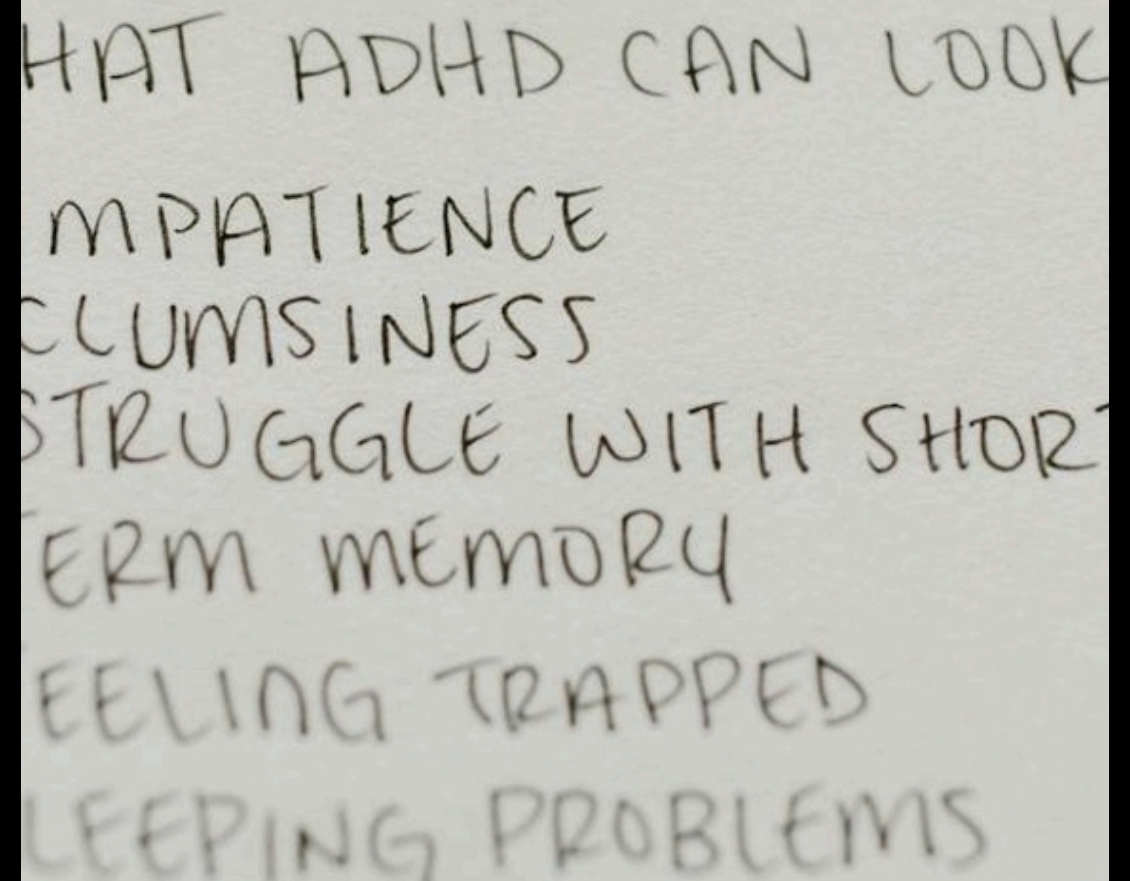 HAT ADHD CAN LOOK
MPATIENCE
CLUMSINESS
STRUGGLE WITH SHORT
ERM MEMORY
EELING TRAPPED
LEEPING PROBLEMS